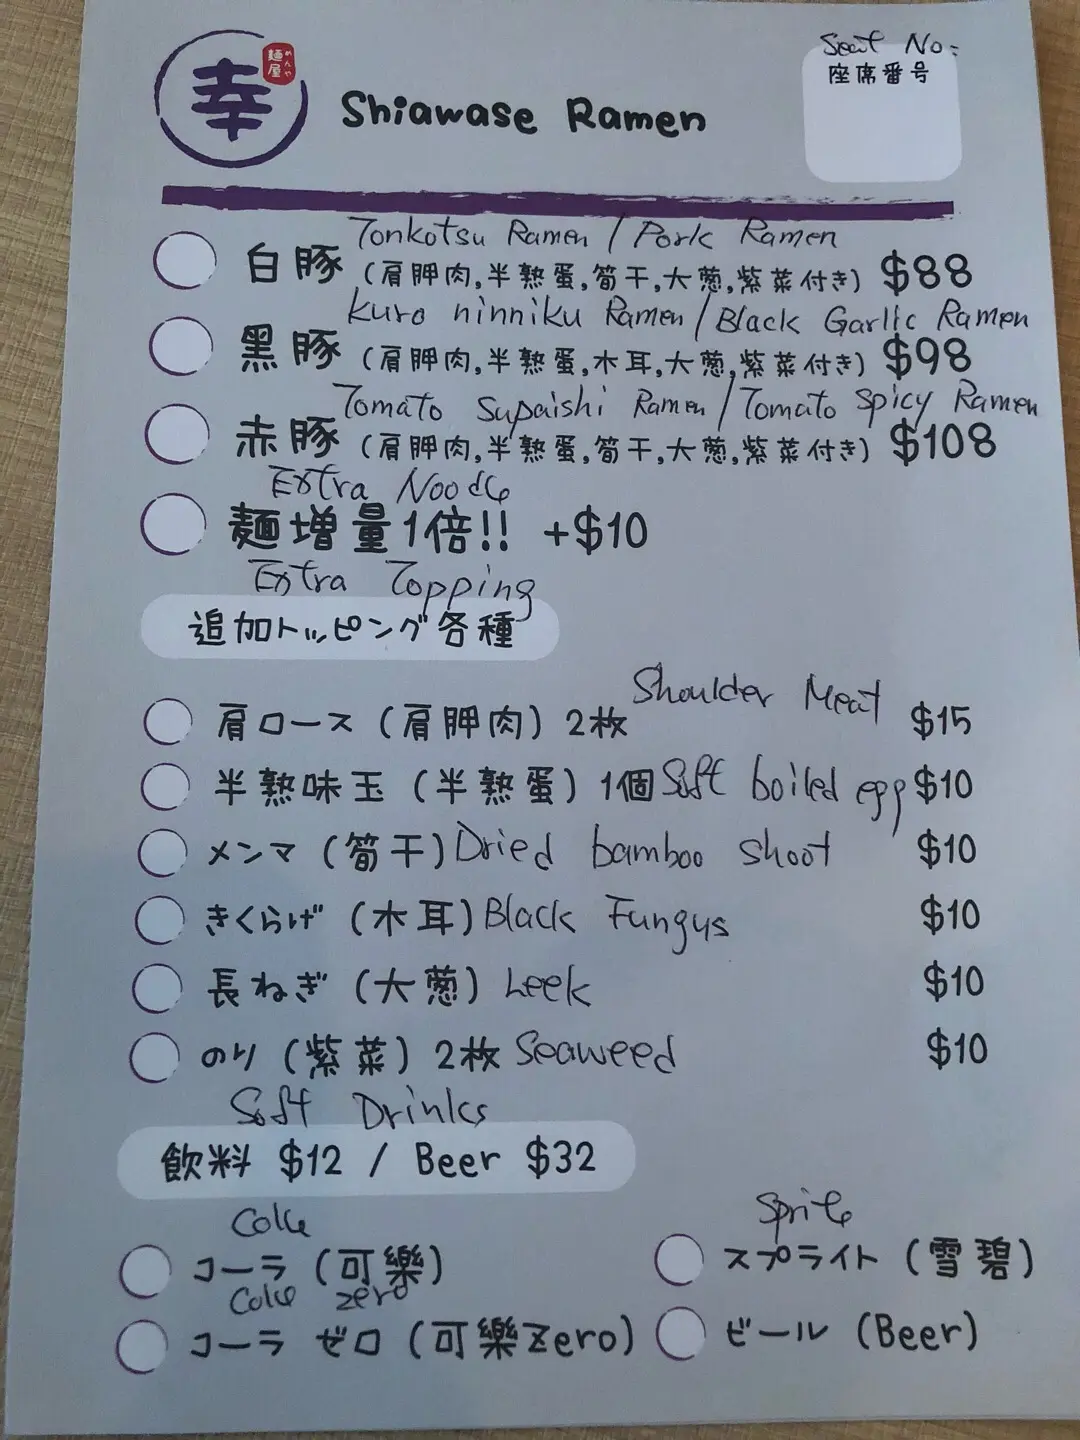 幸
麺屋
めんや
Shiawase Ramen
Seat No:
座席番号
Tonkotsu Ramen / Pork Ramen
白豚 (肩胛肉,半熟蛋,筍干,大葱,紫菜付き) $88
Kuro ninniku Ramen / Black Garlic Ramen
黑豚 (肩胛肉,半熟蛋,木耳,大葱,紫菜付き) $98
Tomato Supaishi Ramen / Tomato Spicy Ramen
赤豚 (肩胛肉,半熟蛋,筍干,大葱,紫菜付き) $108
Extra Noodle
麺増量1倍!! +$10
Extra Topping
追加トッピング各種
肩ロース (肩胛肉) 2枚 Shoulder Meat $15
半熟味玉 (半熟蛋) 1個 Soft boiled egg $10
メンマ (筍干) Dried bamboo shoot $10
きくらげ (木耳) Black Fungus $10
長ねぎ (大葱) Leek $10
のり (紫菜) 2枚 Seaweed $10
Soft Drinks
飲料 $12 / Beer $32
Coke
コーラ (可樂)
Sprite
スプライト (雪碧)
Coke zero
コーラ ゼロ (可樂Zero)
ビール (Beer)